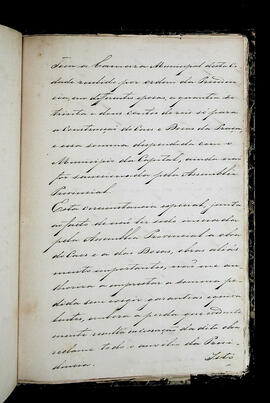 tem a Camara Municipal desta Ci-
dade recebido por ordem da Presiden-
cia, em differentes epocas, a quantia de
trinta e dous contos de reis só para
a construcção do Caes e Becco da Praça
e essa somma despendida com o
Municipio da Capital, ainda não
foi sanccionada pela Assemblea
Provincial.
Esta circumstancia especial, junta
ao facto de não ter sido iniciada
pela Assemblea Provincial a obra
do Caes e a dos Beccos, obras aliás
muito importantes, não me au-
thorisa a aprestar a somma pe-
dida sem exigir garantias equiva-
lentes, embora a perda que evidente-
mente resulta da dita obra
reclame todo o auxilio da Presi-
dencia.